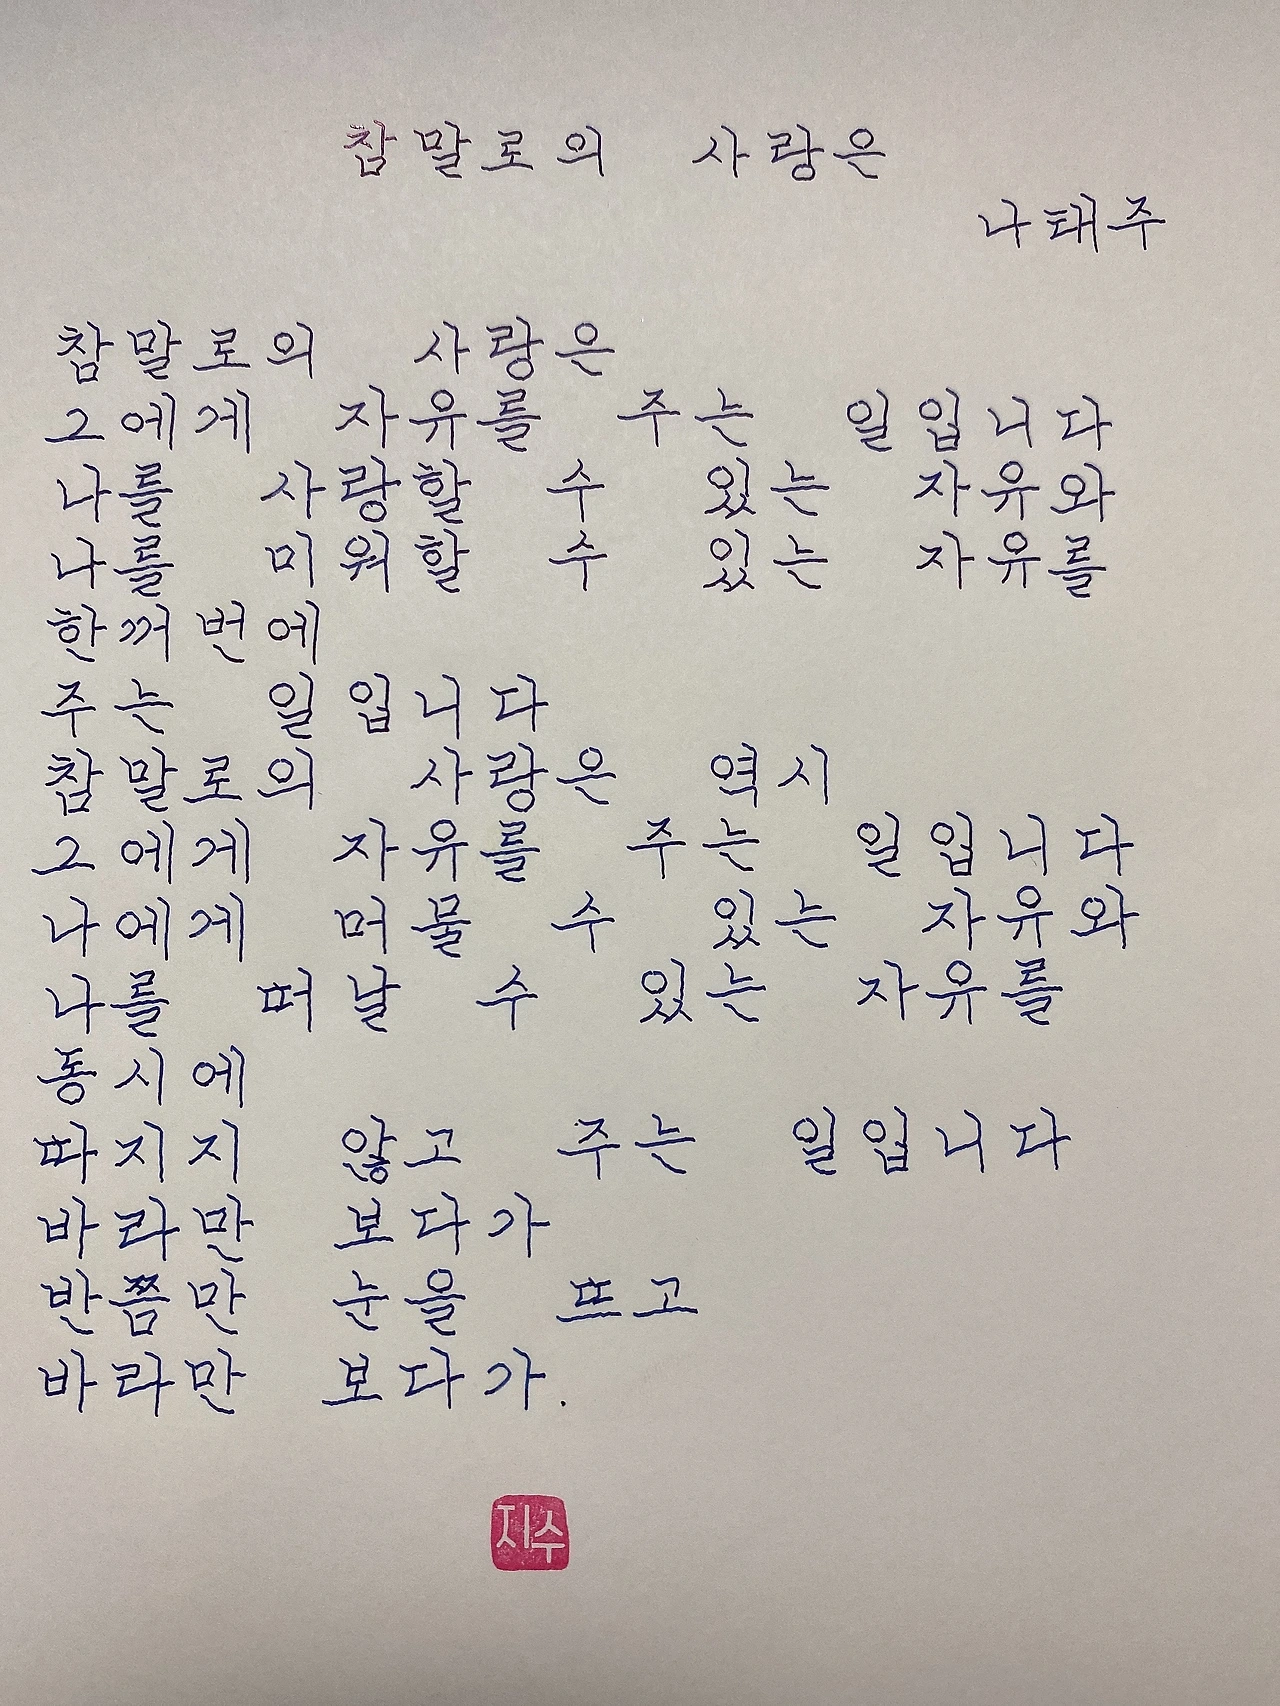 참말로의 사랑은
나태주
참말로의 사랑은
그에게 자유를 주는 일입니다
나를 사랑할 수 있는 자유와
나를 미워할 수 있는 자유를
한꺼번에
주는 일입니다
참말로의 사랑은 역시
그에게 자유를 주는 일입니다
나에게 머물 수 있는 자유와
나를 떠날 수 있는 자유를
동시에
따지지 않고 주는 일입니다
바라만 보다가
반쯤만 눈을 뜨고
바라만 보다가.
지수